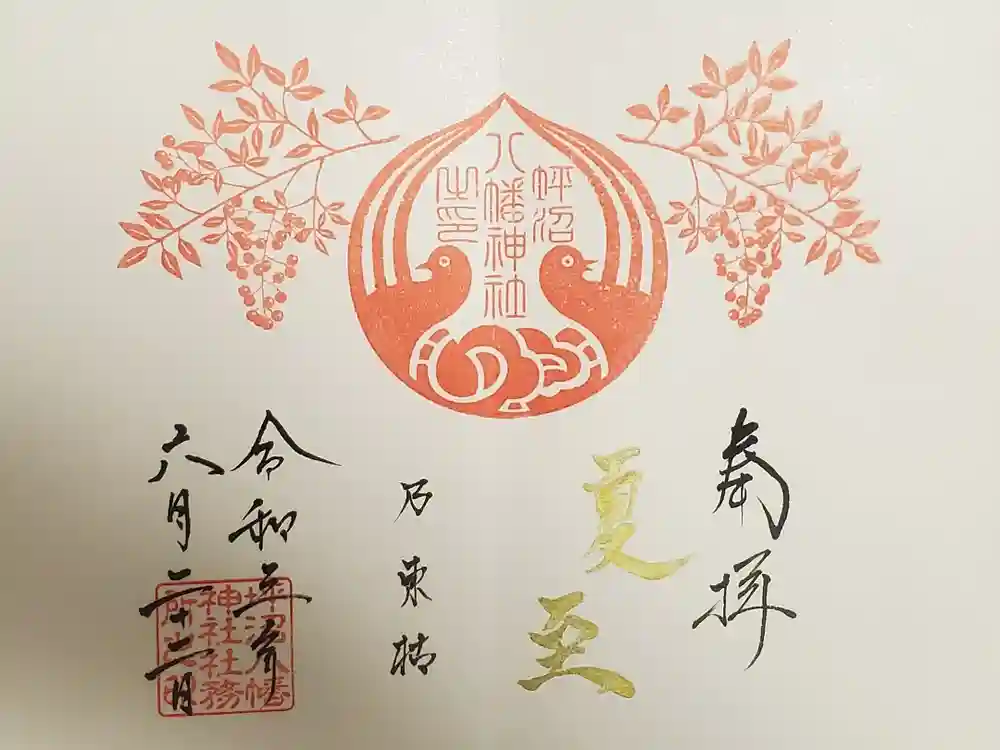 坪沼
八幡神社
之印
奉拝
夏至
乃東枯
令和三年
六月二十二日
坪沼八幡
神社社務
所之印